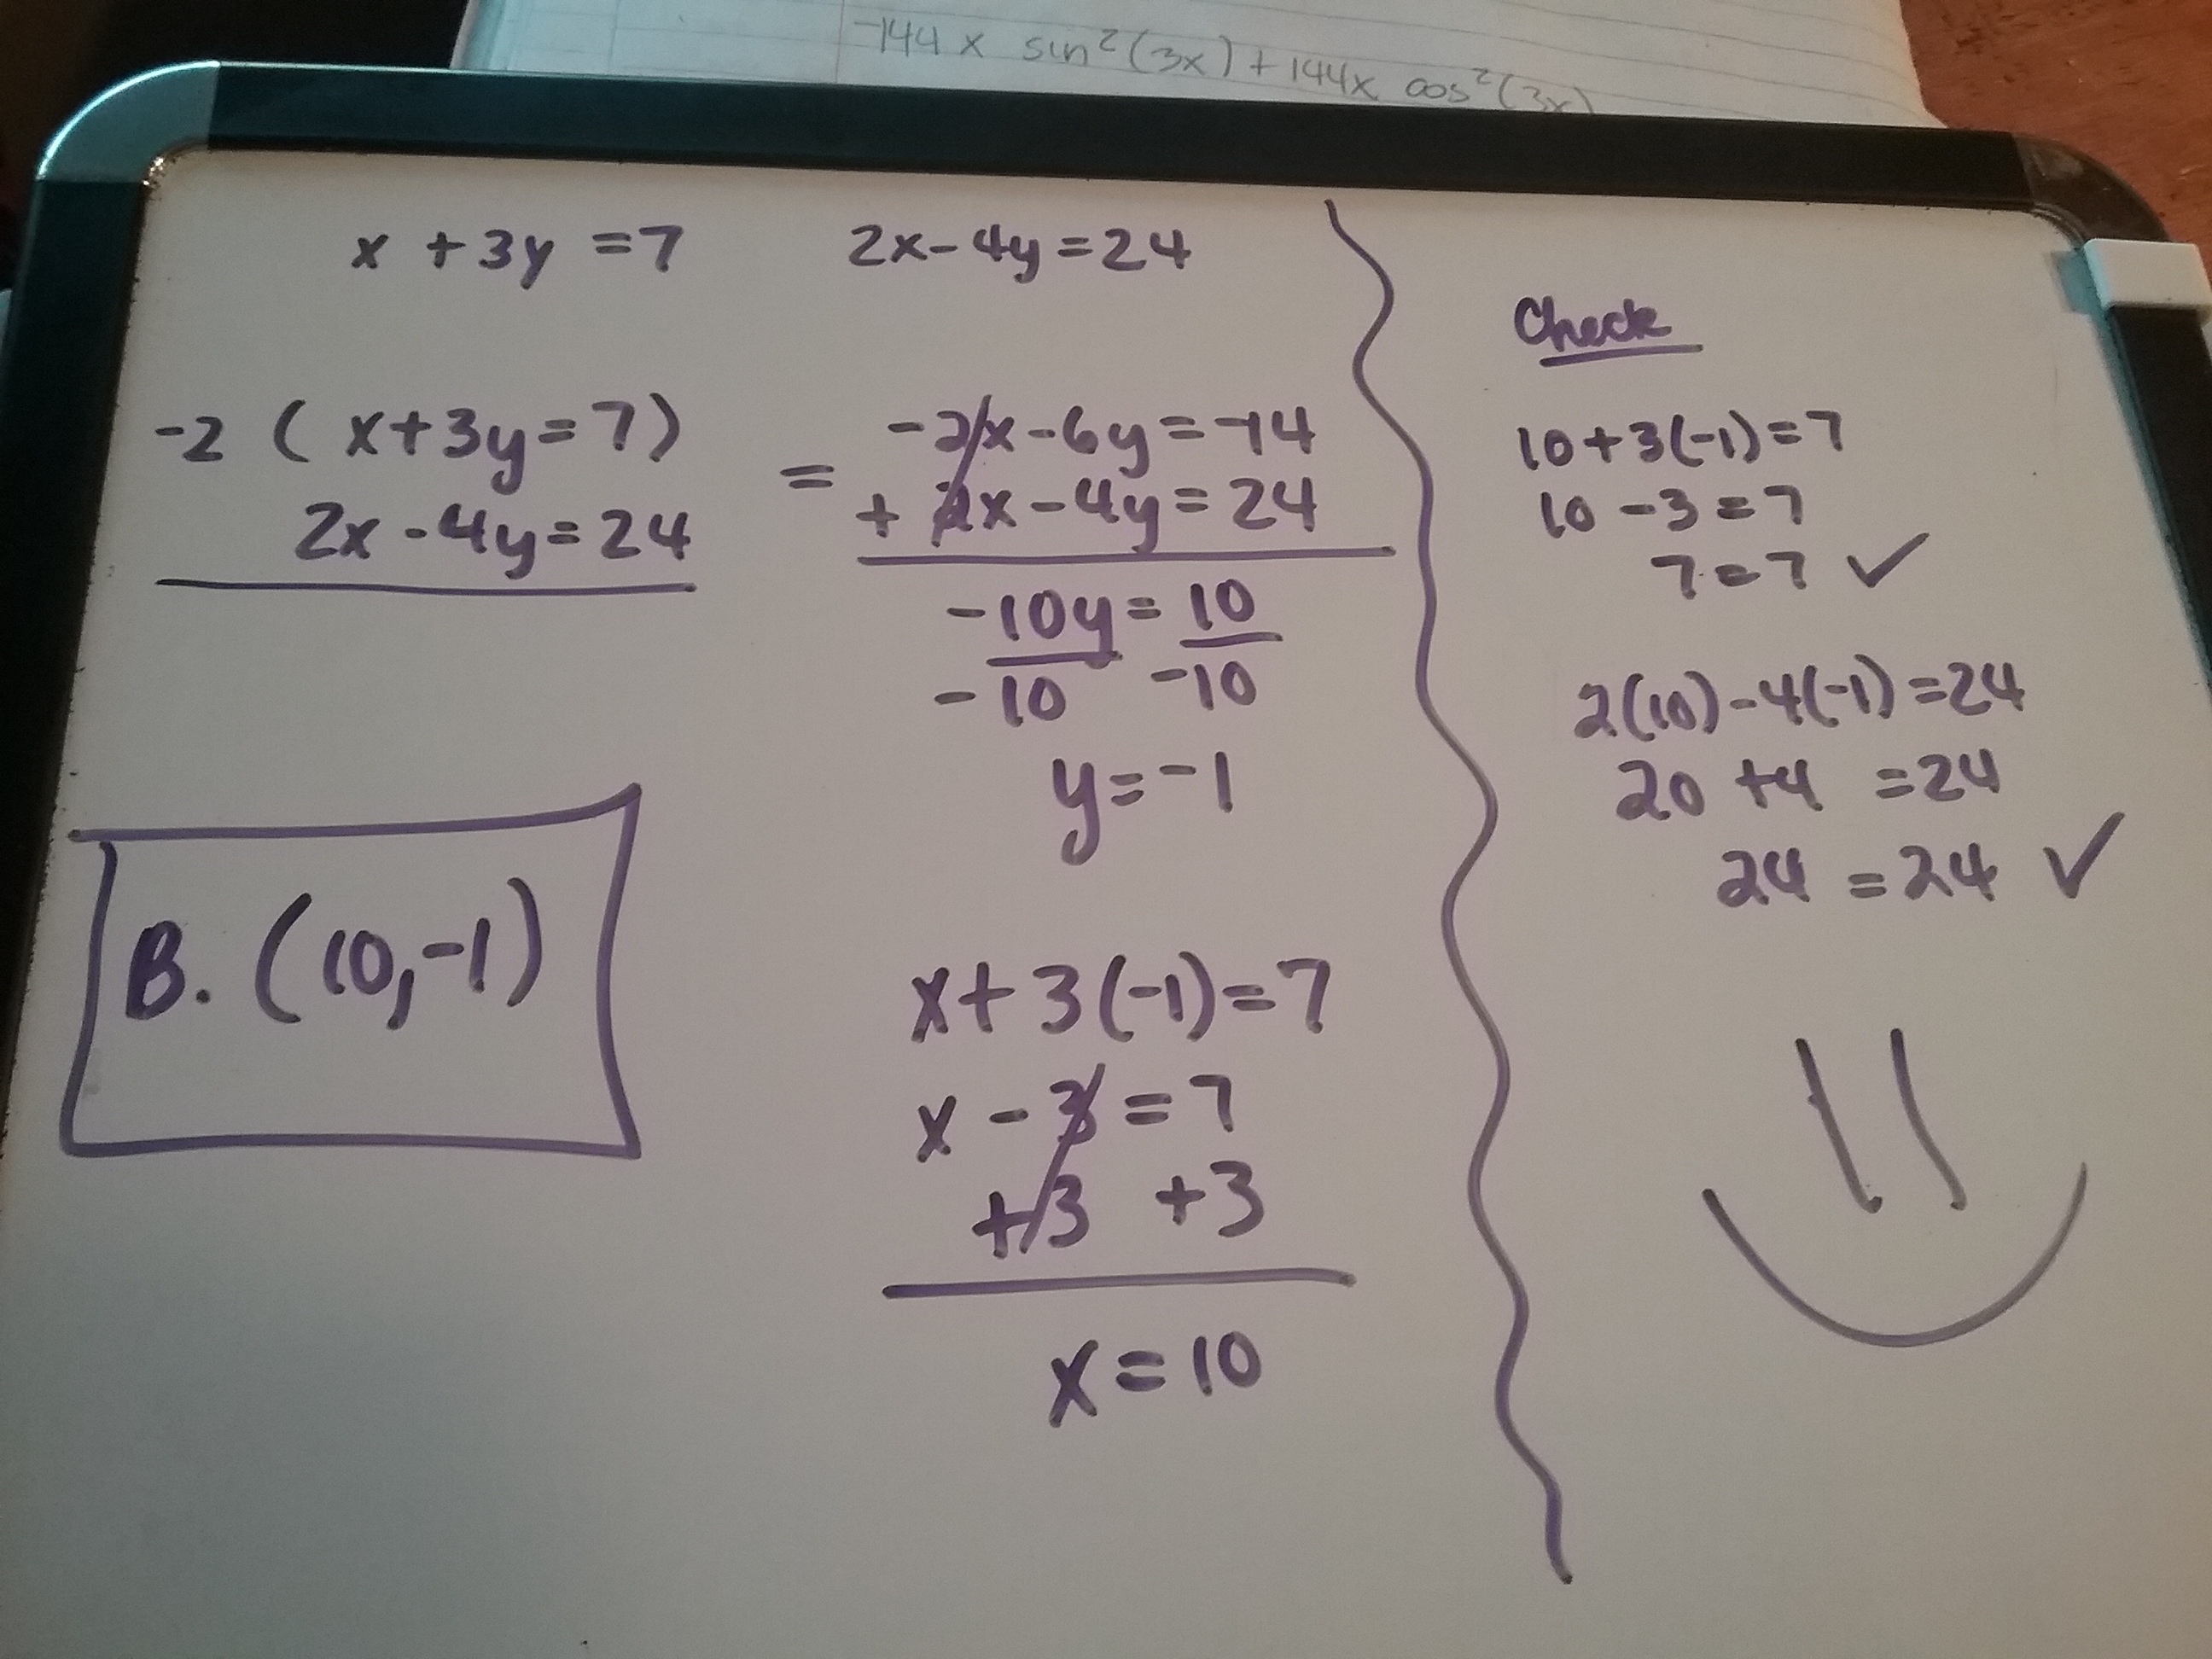 -144x sin²(3x) + 144x cos²(3x)
x + 3y = 7 2x - 4y = 24
-2 ( x + 3y = 7 )
2x - 4y = 24
=
-2x - 6y = -14
+ 2x - 4y = 24
-10y = 10
-10 -10
y = -1
x + 3(-1) = 7
x - 3 = 7
+3 +3
x = 10
B. (10, -1)
Check
10 + 3(-1) = 7
10 - 3 = 7
7 = 7 ✓
2(10) - 4(-1) = 24
20 + 4 = 24
24 = 24 ✓